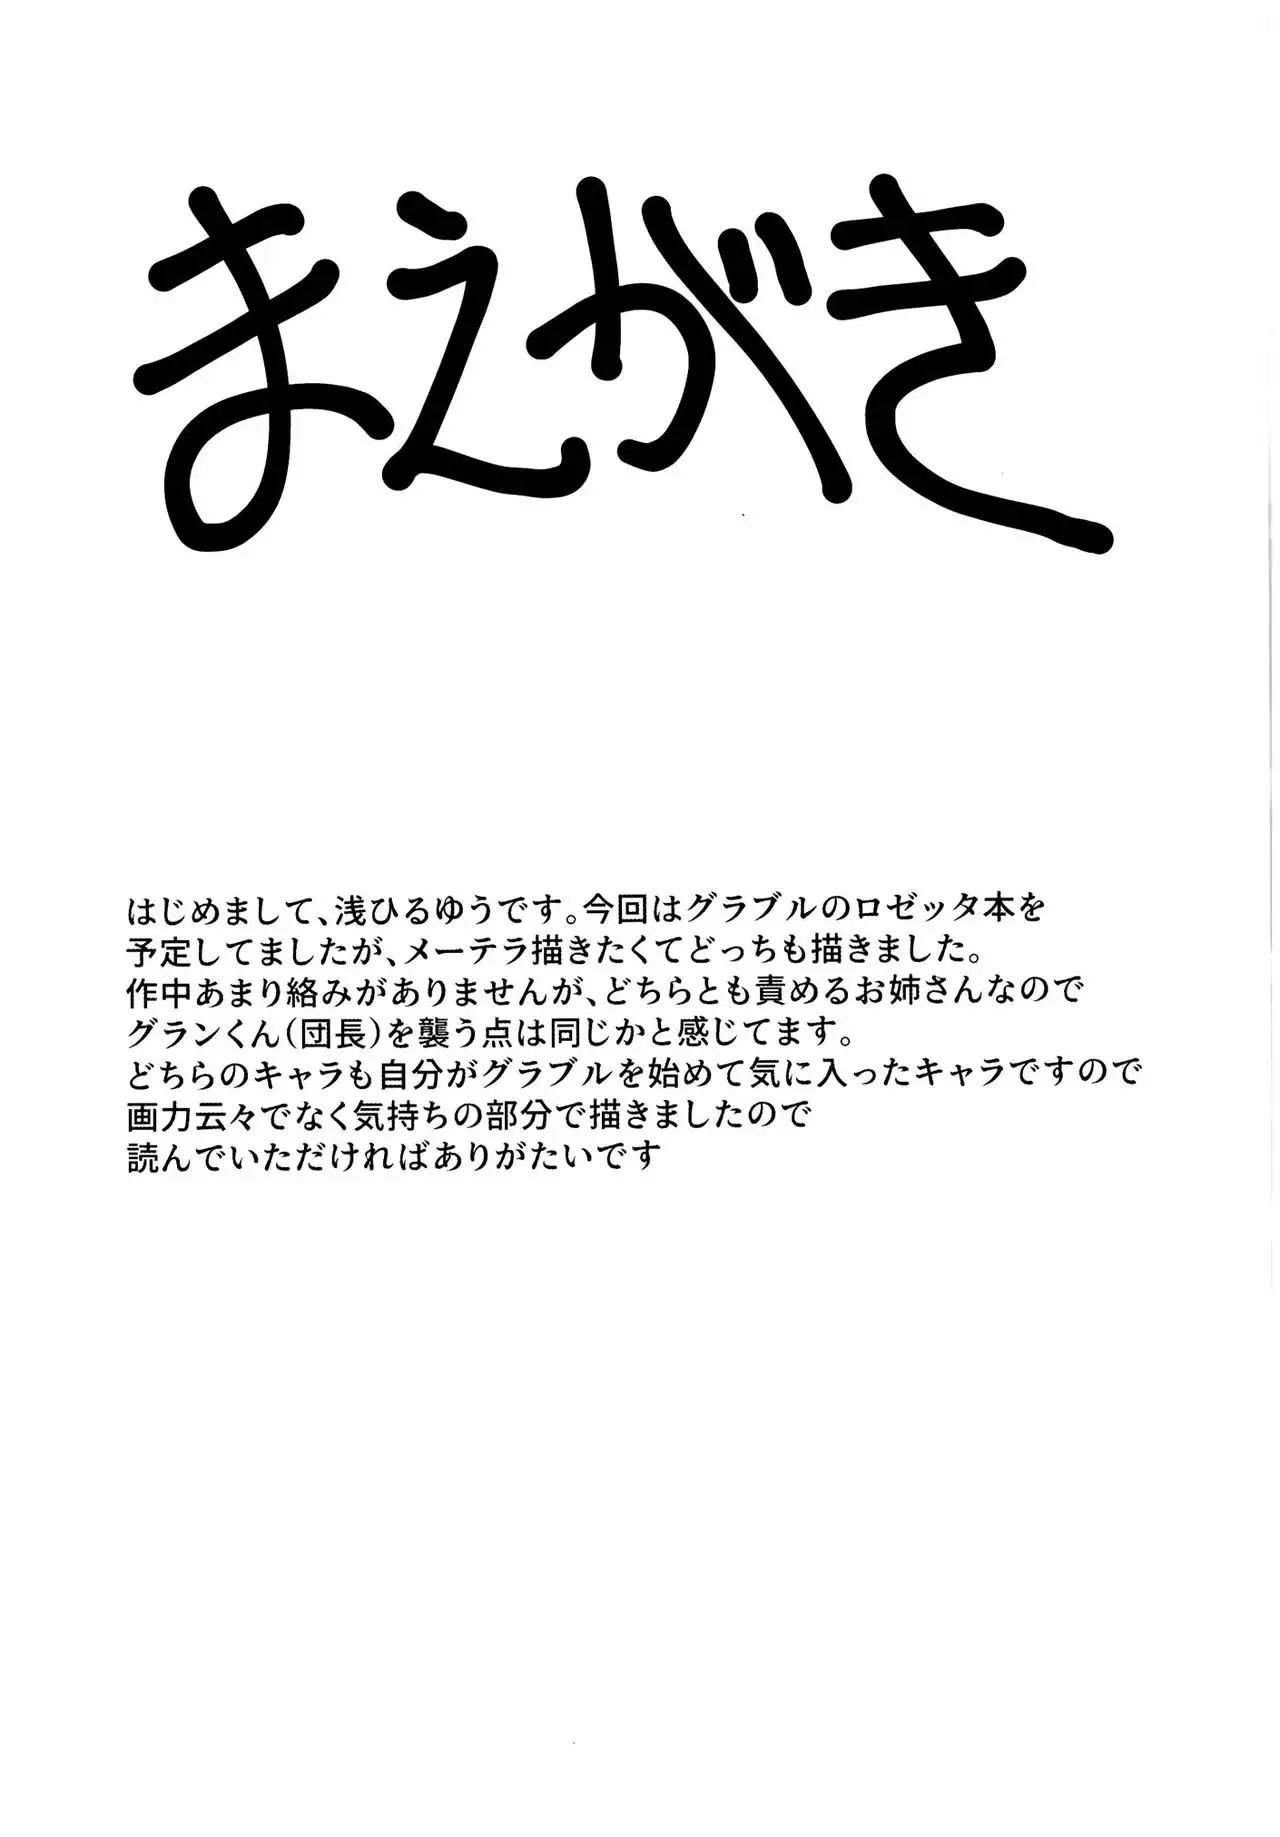 まえがき
はじめまして、浅ひるゆうです。今回はグラブルのロゼッタ本を
予定してましたが、メーテラ描きたくてどっちも描きました。
作中あまり絡みがありませんが、どちらとも責めるお姉さんなので
グランくん(団長)を襲う点は同じかと感じてます。
どちらのキャラも自分がグラブルを始めて気に入ったキャラですので
画力云々でなく気持ちの部分で描きましたので
読んでいただければありがたいです